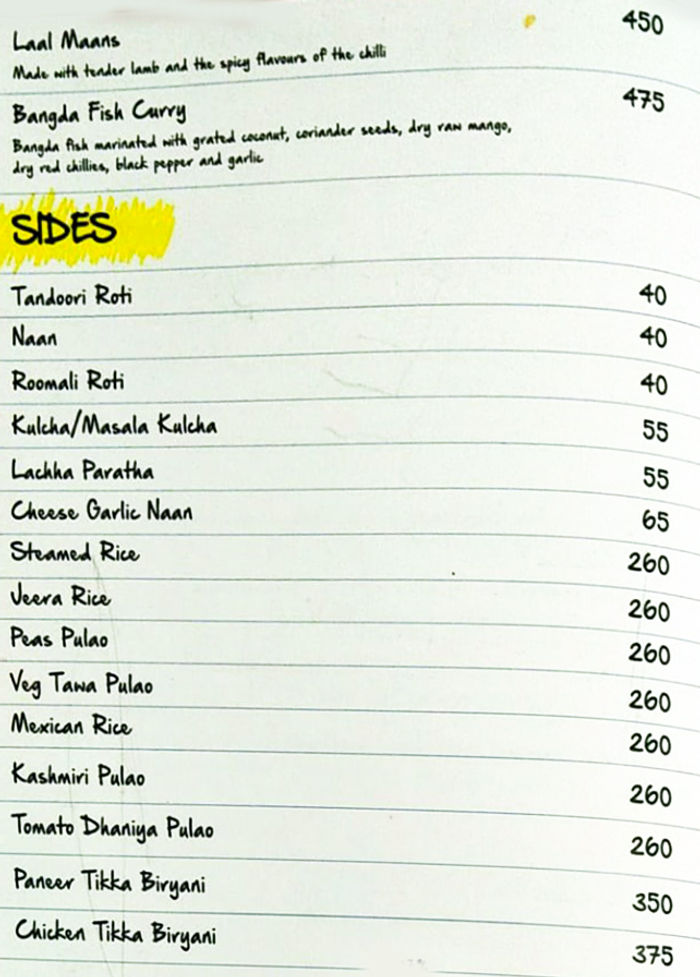 Laal Maans 450
Made with tender lamb and the spicy flavours of the chilli
Bangda Fish Curry 475
Bangda fish marinated with grated coconut, coriander seeds, dry raw mango,
dry red chillies, black pepper and garlic
SIDES
Tandoori Roti 40
Naan 40
Roomali Roti 40
Kulcha/Masala Kulcha 55
Lachha Paratha 55
Cheese Garlic Naan 65
Steamed Rice 260
Jeera Rice 260
Peas Pulao 260
Veg Tawa Pulao 260
Mexican Rice 260
Kashmiri Pulao 260
Tomato Dhaniya Pulao 260
Paneer Tikka Biryani 350
Chicken Tikka Biryani 375